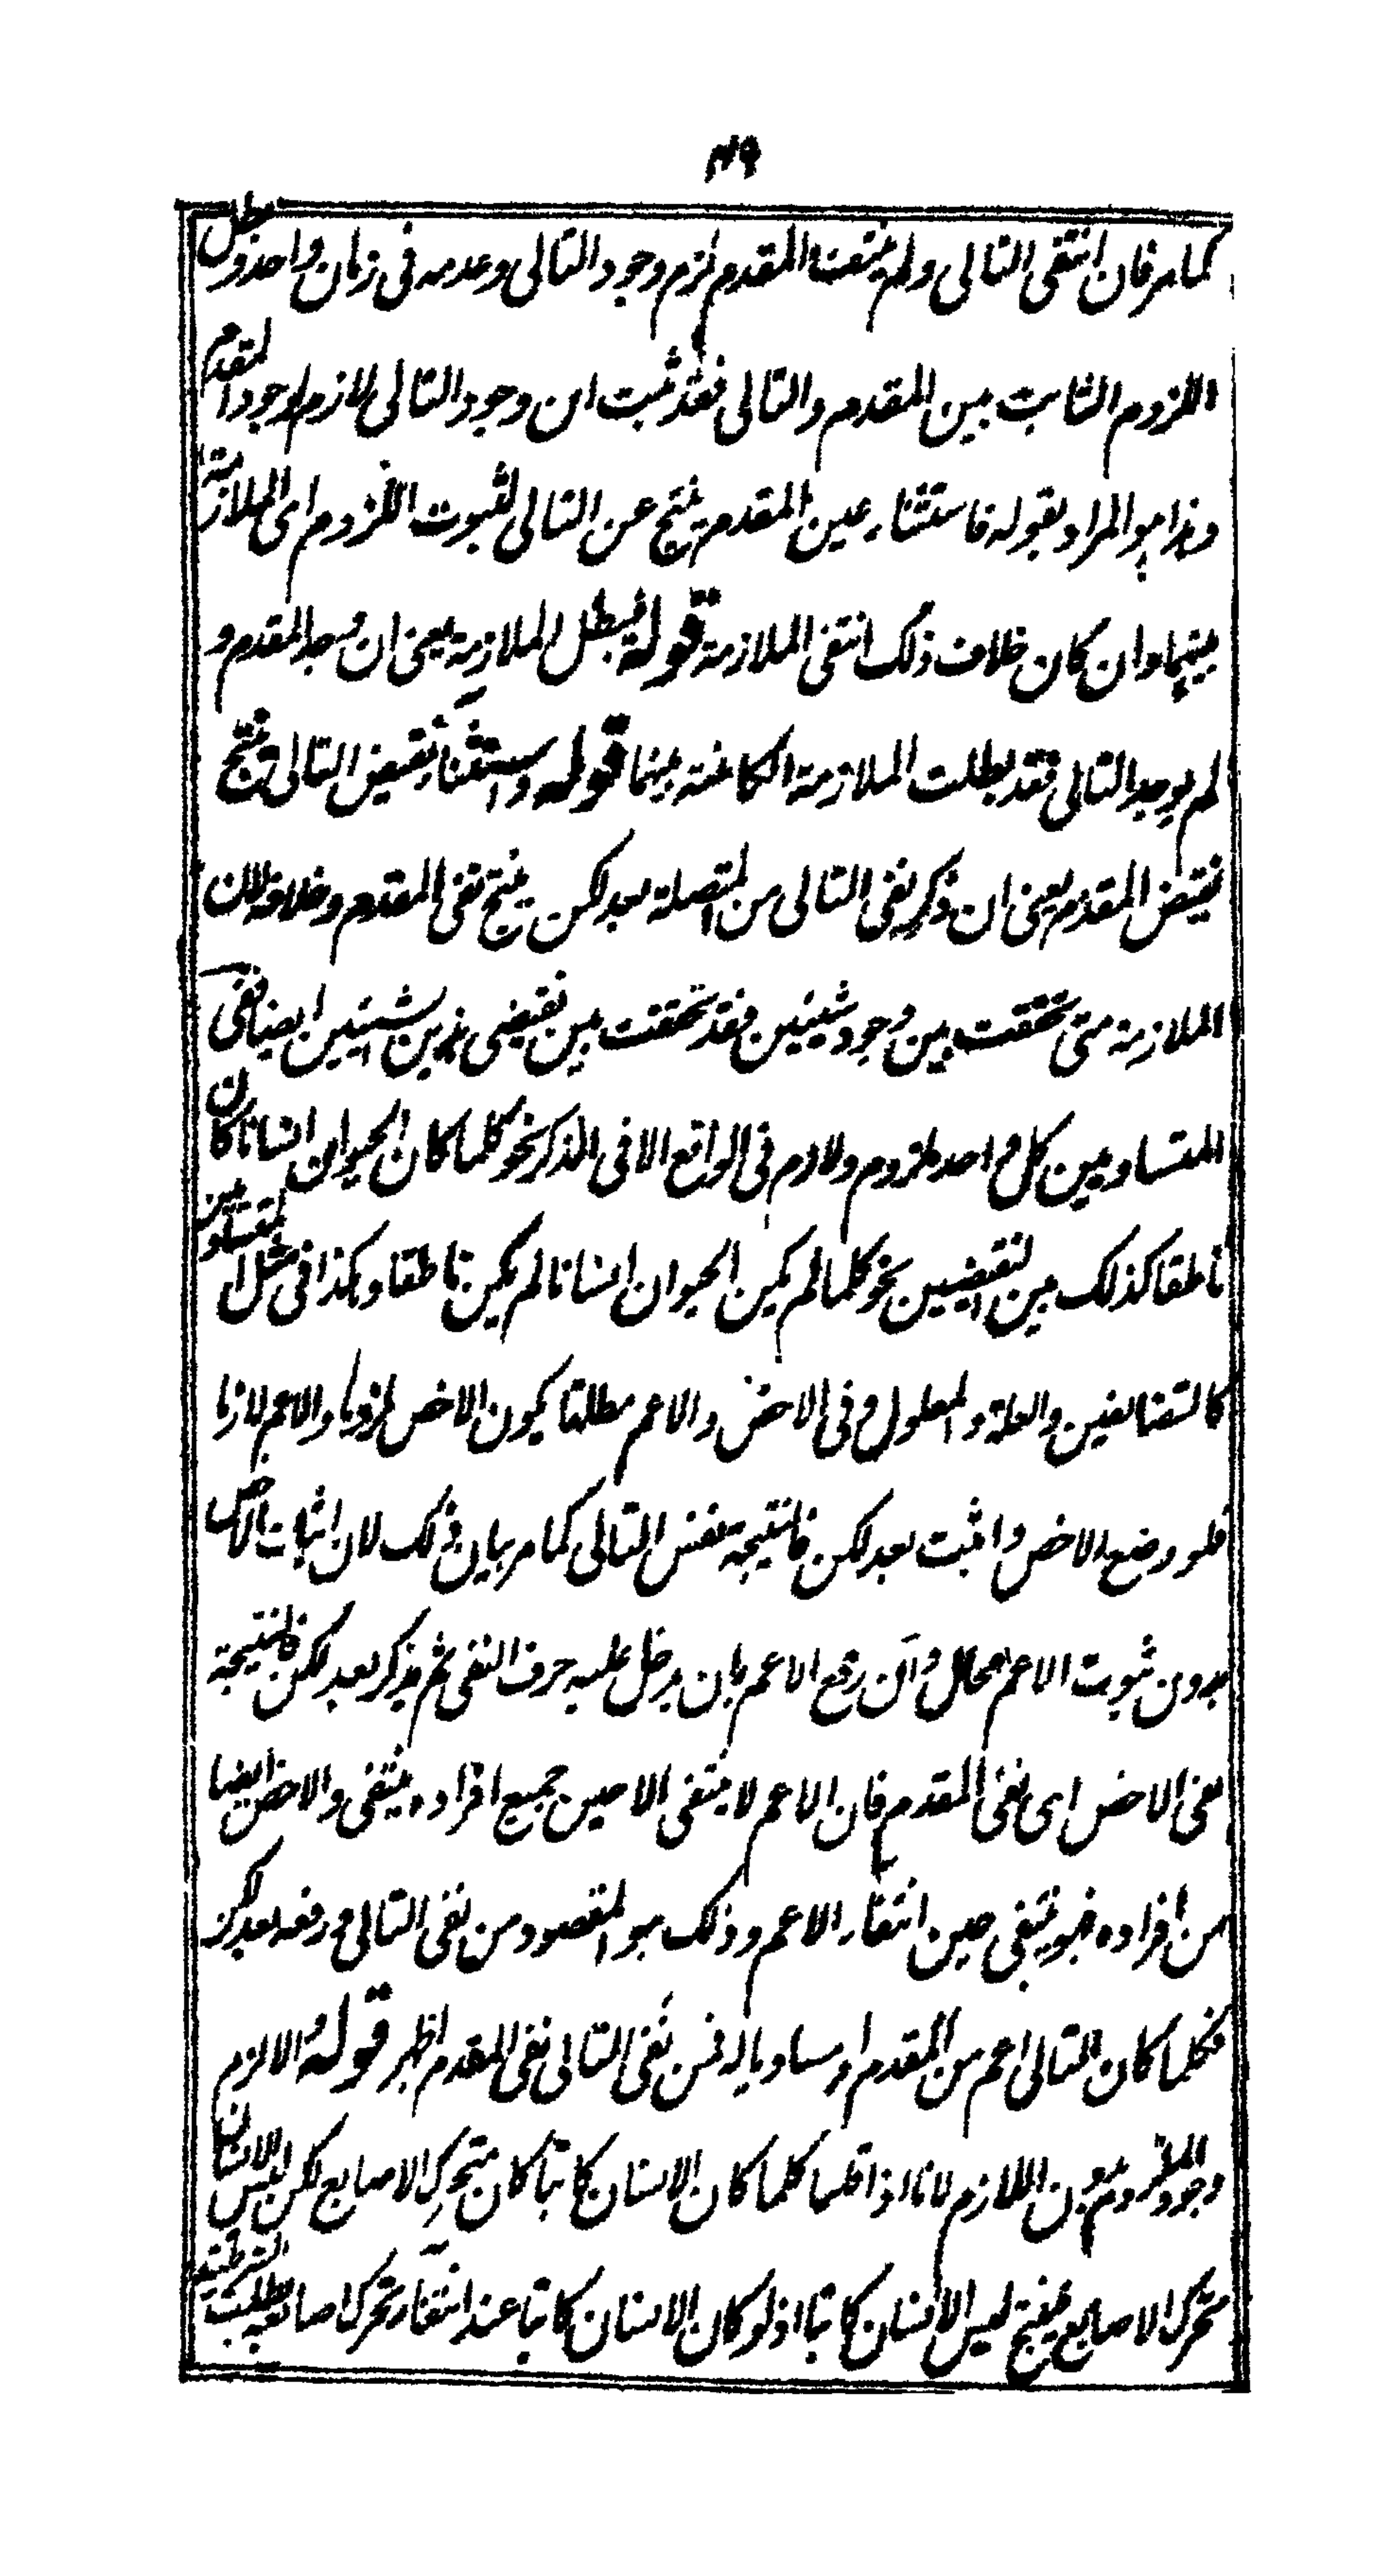 ٤٩
كما مر فان انتفى التالى ولم ينتف المقدم لزم وجود التالى وعدمه فى زمان واحد وبطل
اللزوم الثابت بين المقدم والتالى فقد ثبت ان وجود التالى لازم لوجود المقدم
وهذا هو المراد بقوله فاستثناء عين المقدم ينتج عين التالى لثبوت اللزوم اى الملازمة
بينهما وان كان خلاف ذلك انتفى الملازمة قوله فيبطل الملازمة يعنى ان وجد المقدم و
لم يوجد التالى فقد بطلت الملازمة الكائنة بينهما قوله واستثناء نقيض التالى ينتج
نقيض المقدم يعنى ان ذكر نفى التالى من المتصلة بعد لكن ينتج نفى المقدم وخلافه لان
الملازمة متى تحققت بين وجود شيئين فقد تحققت بين نقيضى هذين الشيئين ايضا ففى
المتساويين كل واحد ملزوم ولازم فى الواقع الا فى الذكر نحو كلما كان الحيوان انسانا كان
ناطقا كذلك بين النقيضين نحو كلما لم يكن الحيوان انسانا لم يكن ناطقا وهكذا فى مثل المتساويين
كالمتضايفين والعلة والمعلول وفى الاخص والاعم مطلقا يكون الاخص ملزوما والاعم لازما
فلو وضع الاخص واثبت بعد لكن فالنتيجة نفس التالى كما مر بيان ذلك لان اثبات الاخص
بدون ثبوت الاعم محال وان رفع الاعم بان يدخل عليه حرف النفى ثم يذكر بعد لكن فالنتيجة
نفى الاخص اى نفى المقدم فان الاعم لا ينتفى الا حين جميع افراده ينتفى والاخص ايضا
من افراده فهو ينتفى حين انتفاء الاعم وذلك هو المقصود من نفى التالى ورفعه بعد لكن
فكلما كان التالى اعم من المقدم او مساويا له فمن نفى التالى نفى المقدم اظهر قوله والا لزم
وجود الملزوم بدون اللازم لانا اذا قلنا كلما كان الانسان كاتبا كان متحرك الاصابع لكن ليس الانسان
متحرك الاصابع ينتج ليس الانسان كاتبا اذ لو كان الانسان كاتبا عند انتفاء تحرك اصابعه بطلت الشرطية